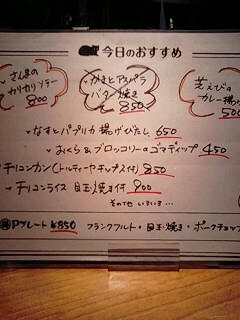 今日のおすすめ
さんまの
カリカリソテー
800
かきとアスパラ
バター焼き
850
芝えびの
カレー揚げ
500
なすとパプリカ 揚げびたし 650
おくら&ブロッコリーのゴマディップ 450
チリコンカン(トルティーヤチップス付) 850
チリコンライス 目玉焼き付 900
その他 いろいろ...
Pプレート ¥850
フランクフルト・目玉焼き・ポークチョップ